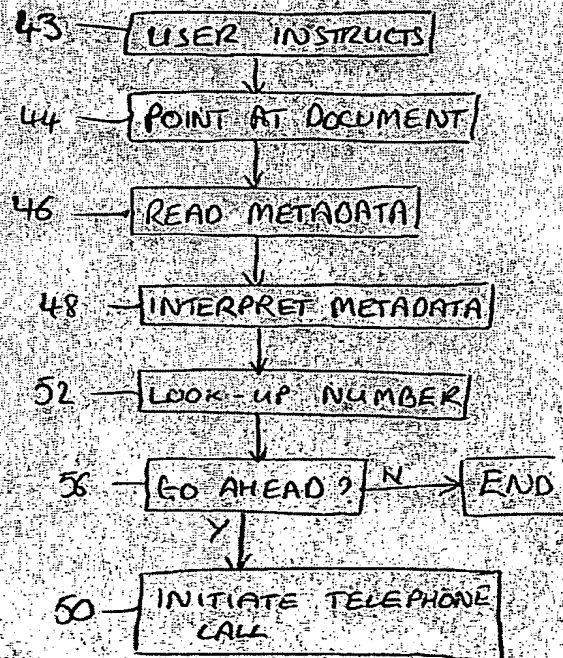 43 USER INSTRUCTS
44 POINT AT DOCUMENT
46 READ METADATA
48 INTERPRET METADATA
52 LOOK-UP NUMBER
56 GO AHEAD? N END
Y
50 INITIATE TELEPHONE
CALL